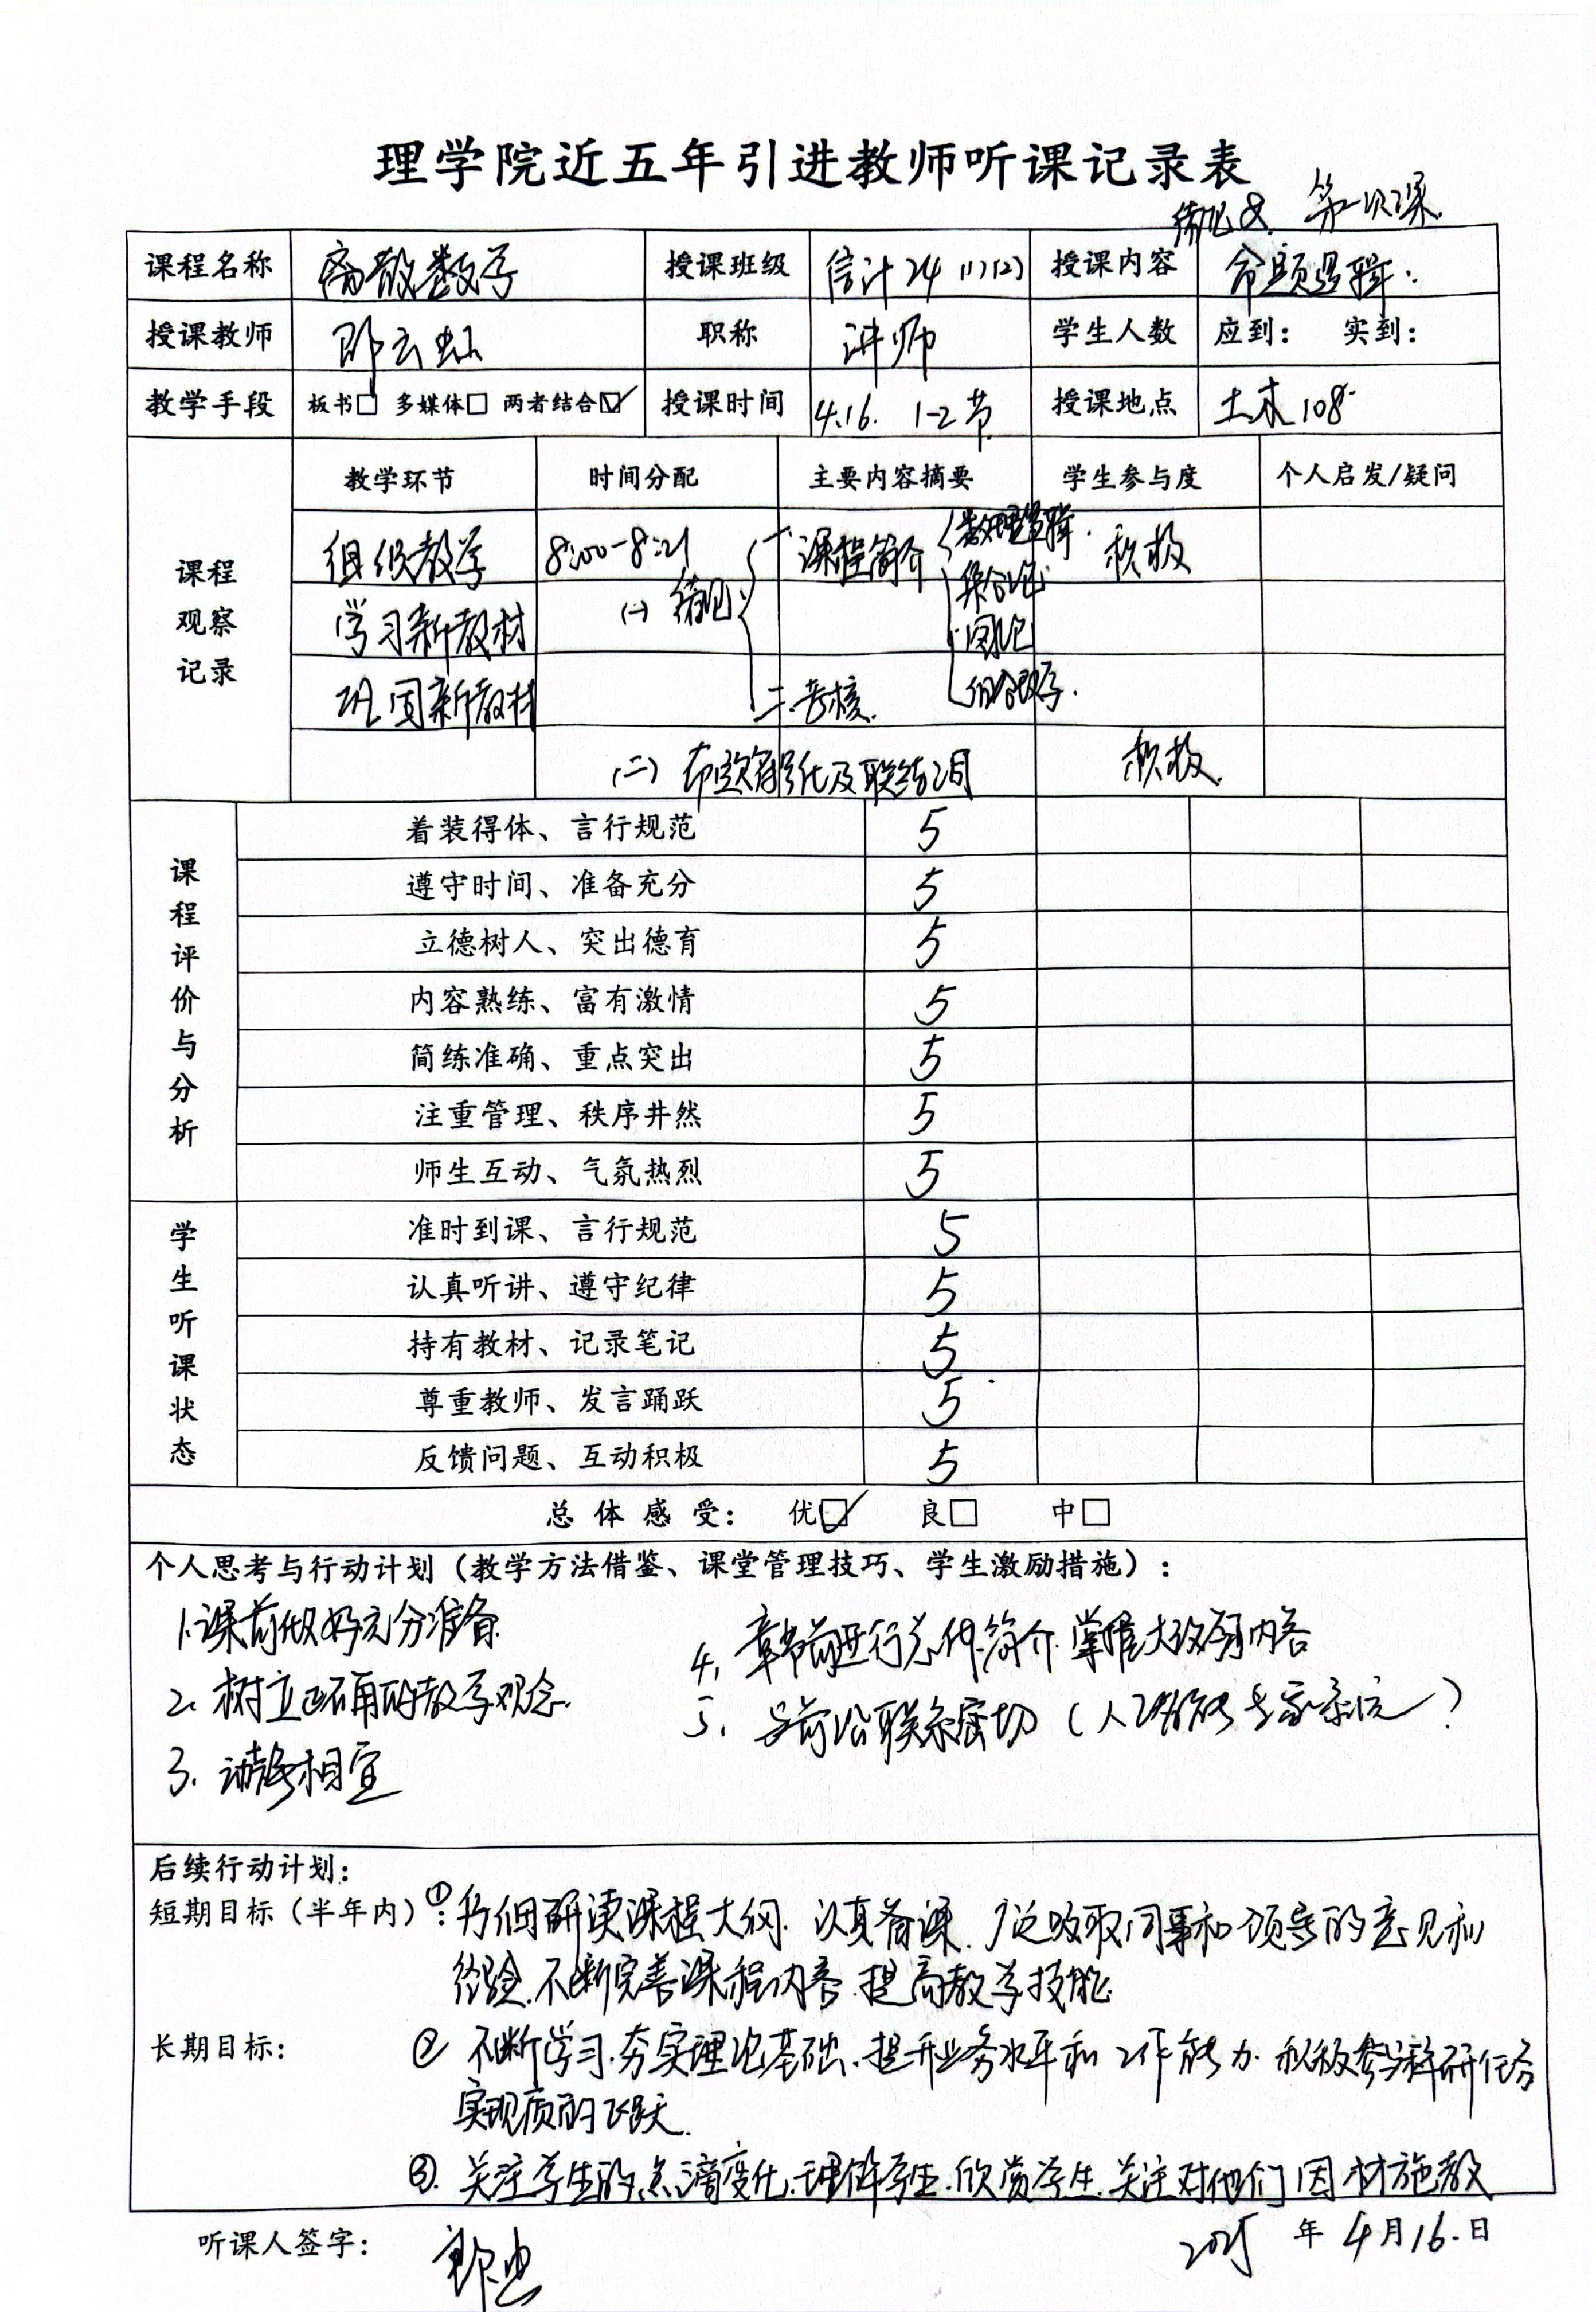 理学院近五年引进教师听课记录表
绪论及 第一次课.
课程名称 离散数学 授课班级 信计24 (1)(2) 授课内容 命题逻辑.
授课教师 邵云虹 职称 讲师 学生人数 应到: 实到:
教学手段 板书□ 多媒体□ 两者结合☑ 授课时间 4.16. 1-2节 授课地点 土木108
课程观察记录
教学环节 时间分配 主要内容摘要 学生参与度 个人启发/疑问
组织教学 8:00-8:21 一.课程简介 数理逻辑. 积极
学习新教材 (一) 绪论 集合论
图论
巩固新教材 二.考核. 组合数学.
(二) 命题符号化及联结词 积极.
课程评价与分析
着装得体、言行规范 5
遵守时间、准备充分 5
立德树人、突出德育 5
内容熟练、富有激情 5
简练准确、重点突出 5
注重管理、秩序井然 5
师生互动、气氛热烈 5
学生听课状态
准时到课、言行规范 5
认真听讲、遵守纪律 5
持有教材、记录笔记 5
尊重教师、发言踊跃 5
反馈问题、互动积极 5
总体感受: 优☑ 良□ 中□
个人思考与行动计划（教学方法借鉴、课堂管理技巧、学生激励措施）:
1.课前做好充分准备.
2. 树立正确的教学观念.
3. 动静相宜
4. 章节前进行总体简介.掌握大致内容
5. 与前沿联系密切（人工智能 专家系统）
后续行动计划:
短期目标（半年内）: ①仔细研读课程大纲.认真备课.广泛吸取同事和领导的意见和
经验.不断完善课程内容.提高教学技能
长期目标: ② 不断学习.夯实理论基础.提升业务水平和工作能力.积极参与科研任务
实现质的飞跃.
③. 关注学生的点滴变化.理解学生.欣赏学生.关注对他们因材施教
听课人签字:
2025 年 4月16.日